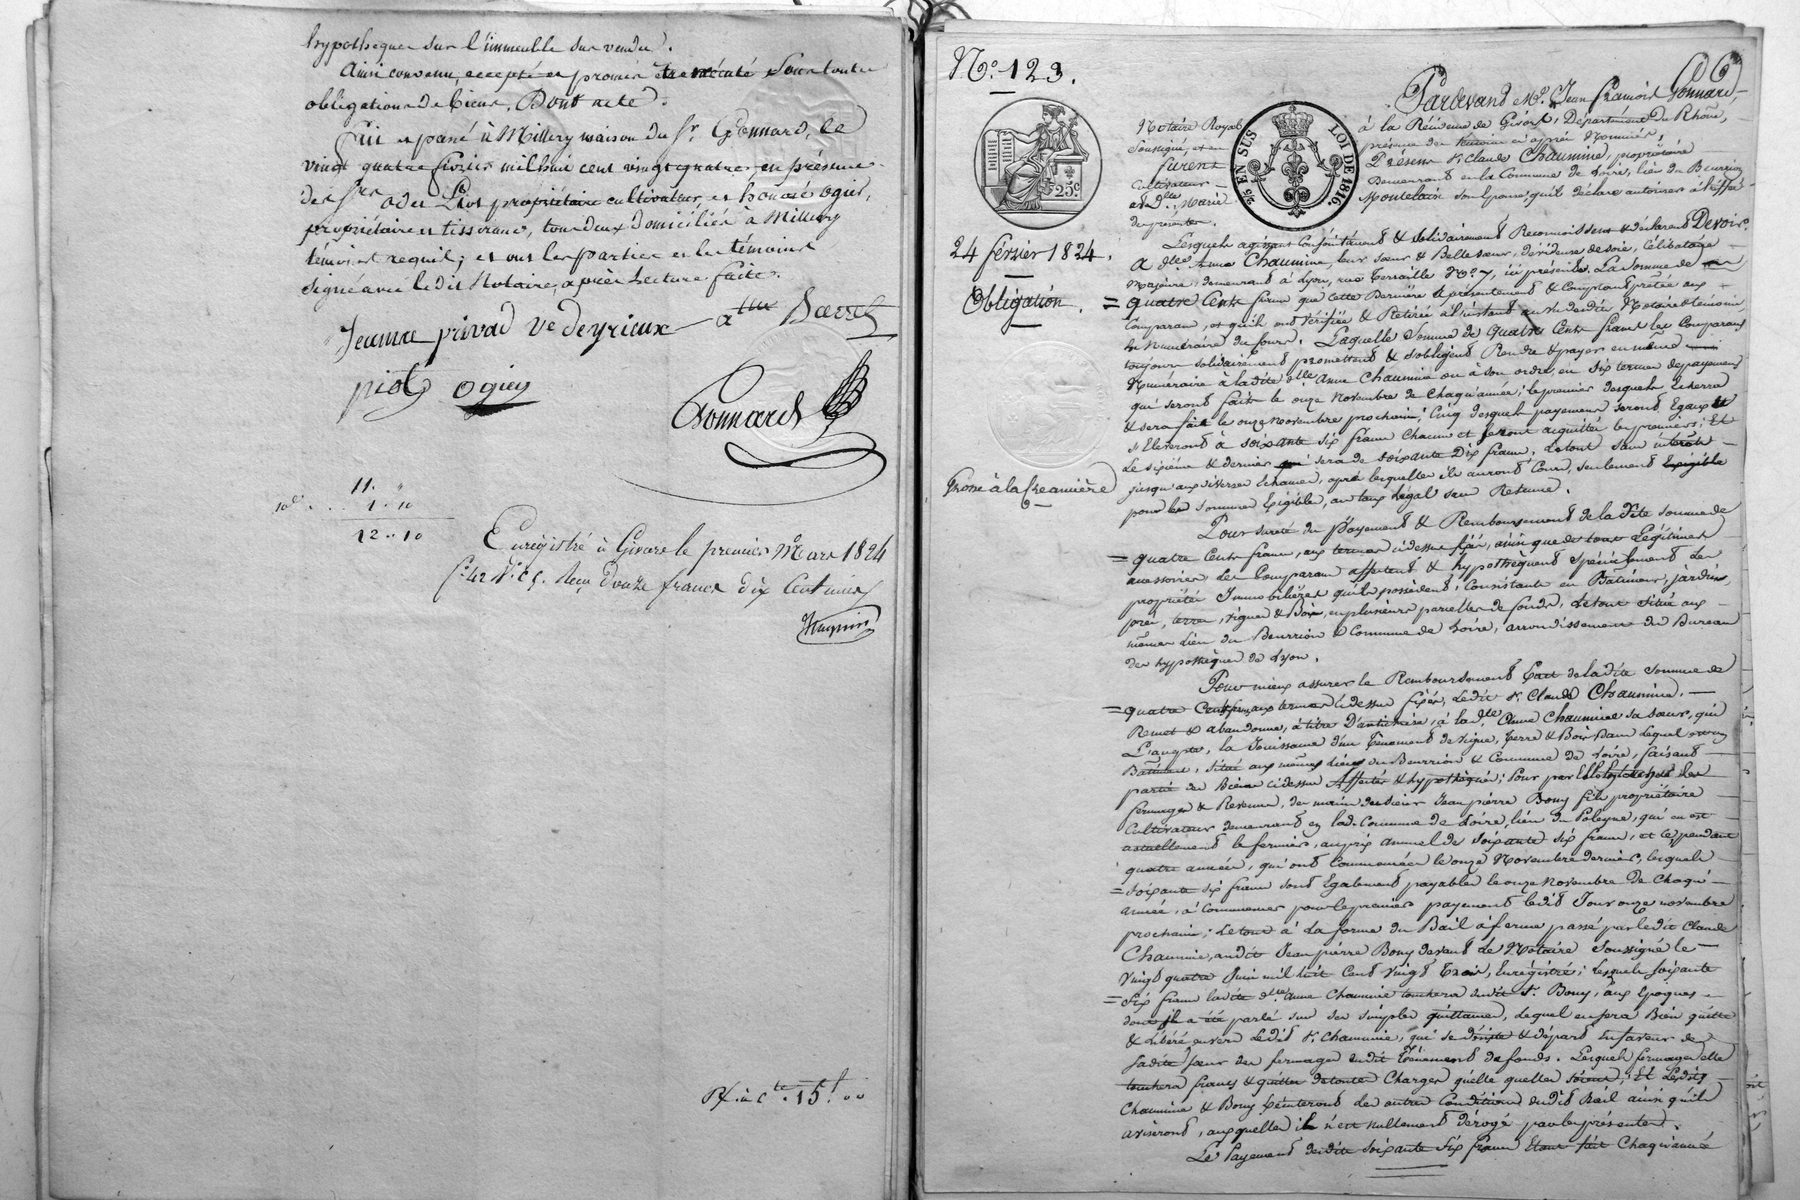 hypothequer sur l'immeuble sus vendu.
Ainsi convenu, accepté et promis être exécuté sous toutes
obligations de biens. Dont acte.
Fait et passé à Millery maison du Sr. Gonnard, le
vingt quatre février mil huit cent vingt quatre, en présence
des Srs propriétaire cultivateur, et honoré ogier,
propriétaire et tisserand, tous deux domiciliés à Millery
témoins requis; et ont les parties et les témoins
signé avec ledit Notaire, après Lecture faite.
Jeanne privad Ve deyrieux
piot ogier
Gonnard
11. "
10e. .. 1 .. 10
12 .. 10
Enregistré à Givors le premier Mars 1824
fo. 42 Reçu Douze francs dix Centimes
15f. ""
No. 123.
Pardevant Me. Jean françois Gonnard,
Notaire Royal à la Résidence de Givors, Département du Rhône,
Soussigné, et en présence des témoins ci après Nommés,
furent Présens Sr. Claude Chaumine, propriétaire
Cultivateur demeurant en la Commune de Loire, lieu du Beurrion
et dlle. Marie Montelain son Epouse, qu'il déclare autoriser à l'effet
des présentes.
25c.
2e. EN SUS
LOI DE 1816.
24 février 1824.
Obligation.
Grosse à la Creancière
Lesquels agissant Conjointement & solidairement Reconnoissent & déclarent Devoir
A dlle. Anne Chaumine leur sœur & Belle sœur, dévideuse de soie, Célibataire
Majeure, demeurant à Lyon, rue Terraille No. 7, ici présente, La somme de
= quatre Cents francs que cette Dernière a présentement & Comptant prêtée aux
Comparans, et qu'ils ont vérifiée & Retirée à l'instant au vu desdits Notaire & témoins,
en Numéraire du jour. Laquelle somme de quatre Cents francs les Comparans
toujours solidairement promettent & s'obligent Rendre & payer en même
Numéraire à ladite dlle Anne Chaumine ou à son ordre, en six termes de payemens
qui seront faits le onze Novembre de Chaqu'année; le premier desquels écherra
& sera fait le onze Novembre prochain; Cinq desquels payemens seront Egaux &
s'Eleveront à soixante six francs Chacun et seront acquittés les premiers; Et
Le sixième & dernier sera de soixante Dix francs, Le tout sans intérêts
jusqu'aux diverses échances, après lesquelles ils auront Cour, seulement
pour les sommes Exigibles, au taux Légal sans Retenue.
Pour sureté du Payement & Remboursement de la dite somme de
= quatre Cents francs, aux termes ci dessus fixés, ainsi que de tous Légitimes
accessoires les Comparans affectent & hypothèquent spécialement les
propriétés Immobilières qu'ils possèdent, Consistantes en Bâtimens, jardins,
prés, terres, vignes & Bois, en plusieurs parcelles de fonds, Le tout situé aux
mêmes lieu du Beurrion & Commune de Loire, arrondissement du Bureau
des hypothèques de Lyon.
Pour mieux assurer le Remboursement Exact de ladite somme de
= quatre Cents francs aux termes ci dessus fixés, Ledit Sr. Claude Chaumine.
Remet & abandonne, à titre D'antichrèse, à la dlle Anne Chaumine sa sœur, qui
L'accepte, la Jouissance d'un tènement de vigne, Terre & Bois dans lequel
Bâtiment, situé aux mêmes lieu du Beurrion & Commune de Loire, faisant
partie des Biens ci dessus Affectés & hypothéqués; Pour par Elle toucher les
fermages & Revenus, des mains du sieur Jean pierre Bony fils propriétaire
Cultivateur demeurant en lad. Commune de Loire, lieu du Poleyne, qui en est
actuellement le fermier, au prix annuel de soixante six francs, et ce pendant
quatre années, qui ont Commencées le onze Novembre dernier, lesquels
= soixante six francs sont Egalement payables le onze Novembre de Chaqu'
année, à Commencer pour le premier payement ledit Jour onze novembre
prochain; Le tout à la forme du Bail à ferme passé par ledit Claude
Chaumine, audit Jean pierre Bony devant Le Notaire soussigné le
vingt quatre Juin mil huit Cent vingt Trois, Enregistré; lesquels soixante
= six francs ladite dlle. Anne Chaumine touchera dudit Sr. Bony, aux Epoques
dont il a été parlé sur ses simples quittances, lequel en sera Bien quitte
& Libéré envers Ledit Sr. Chaumine, qui se désiste & départ En faveur de
sadite sœur des fermages dudit tènement de fonds. Lesquels fermages elle
touchera francs & quittes de toutes Charges qu'elle qu'elles soient; Et Lesdits
Chaumine & Bony Exécuteront les autres Conditions dudit Bail ainsi qu'ils
aviseront, auxquelles il n'est nullement dérogé par les présentes.
Le Payement desdits soixante six francs Etant fait Chaqu'année